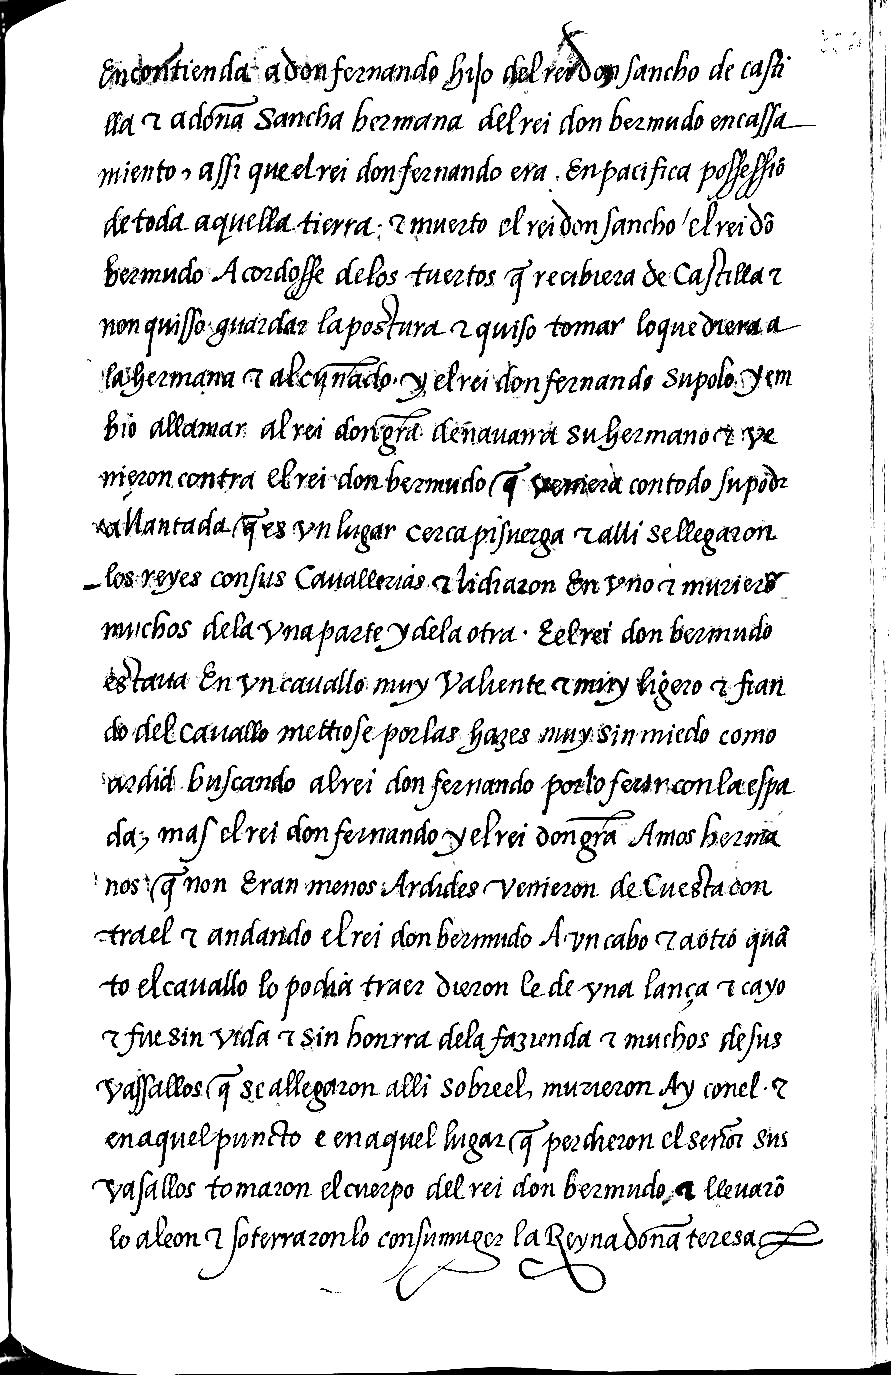 en contienda a don fernando hijo del rei don sancho de casti
lla τ a doña Sancha hermana del rei don bermudo en cassa
miento, assi que el rei don fernando era. En pacifica possessiō
de toda aquella tierra. τ muerto el rei don sancho / el rei dō
bermudo Acordosse delos tuertos q̄ recibiera de Castilla τ
non quisso guardar la postura τ quiso tomar lo que diera a
la hermana τ al cuñado. y el rei don fernando supolo. y em
bio allamar al rei don gr̄a de navarra su hermano τ ve
nieron contra el rei don bermudo q̄ veniera con todo su podr
allantada q̄ es vn lugar cerca pisuerga τ alli se llegaron
los reyes con sus Cauallerias τ lidiaron En vno τ murierō
muchos dela vna parte y dela otra. E el rei don bermudo
estaua En vn cauallo muy valiente τ muy ligero τ fian
do del Cauallo mettiose por las hazes muy sin miedo como
ardid buscando al rei don fernando por lo ferir con la espa
da, mas el rei don fernando y el rei don gr̄a Amos herma
nos q̄ non Eran menos Ardides venieron de Cuesta con
tra el τ andando el rei don bermudo A vn cabo τ a otro quā
to el cauallo lo podia traer dieron le de vna lança τ cayo
τ fue sin vida τ sin honrra dela fazienda τ muchos de sus
vassallos q̄ se allegaron alli sobre el, murieron Ay con el. τ
en aquel puncto e en aquel lugar q̄ perdieron el señor sus
vasallos tomaron el cuerpo del rei don bermudo τ lleuarō
lo a leon τ soterraron lo con su muger la Reyna doña teresa